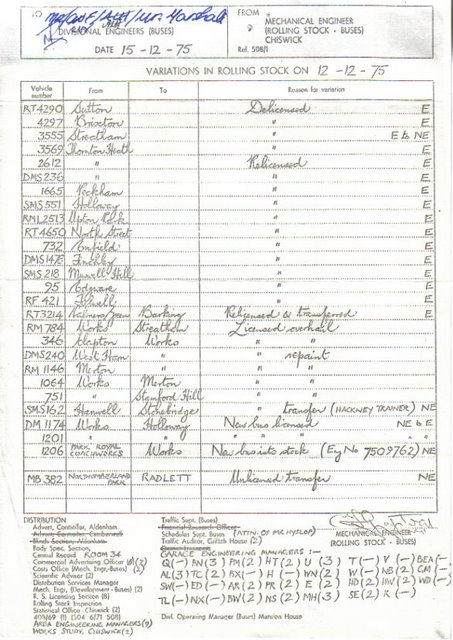 TO
FROM
MECHANICAL ENGINEER
DIVISIONAL ENGINEERS (BUSES)
(ROLLING STOCK - BUSES)
CHISWICK
DATE 15-12-75
Ref. 508/1
VARIATIONS IN ROLLING STOCK ON 12-12-75
Vehicle number From To Reason for variation
RT4290 Sutton Delicensed E
4297 Brixton " E
3555 Streatham " E to NE
3569 Thornton Heath " E
2612 " Relicensed E
DMS 236 " " E
1665 Peckham " E
SMS 551 Holloway " E
RML2513 Upton Park " E
RT4650 North Street " E
732 Enfield " E
DMS 1478 Finchley " E
SMS 218 Muswell Hill " E
95 Edgware " E
RF 421 " E
RT3214 Palmers Green Barking Relicensed & transferred E
RM 784 Works Streatham Licensed overhaul
346 Clapton Works " "
DMS240 West Ham " " repaint
RM 1146 Merton " " "
1064 Works Merton " "
751 " Stamford Hill " "
SMS162 Hanwell Stonebridge " transfer (HACKNEY TRAINER) NE
DM 1174 Works Holloway New bus licensed NE to E
1201 " " " " "
1206 PARK ROYAL COACHWORKS Works New bus into stock (Eng No 7509762) NE
MB 382 NORTHUMBERLAND PARK RADLETT Unlicensed transfer NE
DISTRIBUTION
Advert. Controller, Aldenham
Advert. Controller, Camberwell
Body Spec. Section,
Central Record ROOM 34
Commercial Advertising Officer (3)
Costs Office (Mech. Engr-Buses) (2)
Scientific Adviser (2)
Distribution Services Manager
Mech. Engr, (Development - Buses) (2)
R. S. Licensing Section (8)
Rolling Stock Inspection
Statistical Office - Chiswick (2)
403/69 (1) (504 6/7) 508)
AREA ENGINEERING MANAGERS (9)
WORKS STUDY, CHISWICK (2)
Traffic Supt. (Buses)
Financial Research Officer
Schedules Supt. Buses (ATTN. OF MR HYSLOP)
Traffic Auditor, Griffith House (2)
MECHANICAL ENGINEER
(ROLLING STOCK - BUSES)
GARAGE ENGINEERING MANAGERS :-
Q(-) AN(3) PM(2) HT(2) U(3) T(-) V(-) BEA(-)
AL(3) TC(2) AX(-) H(-) WN(2) W(-) NB(2) GM(-)
SW(-) ED(-) AR(-) PR(2) E(2) HD(2) HW(2) WD(-)
TL(-) NX(-) BW(2) NS(2) MH(3) SE(2) K(-)
Divl. Operating Manager (Buses) Mansion House